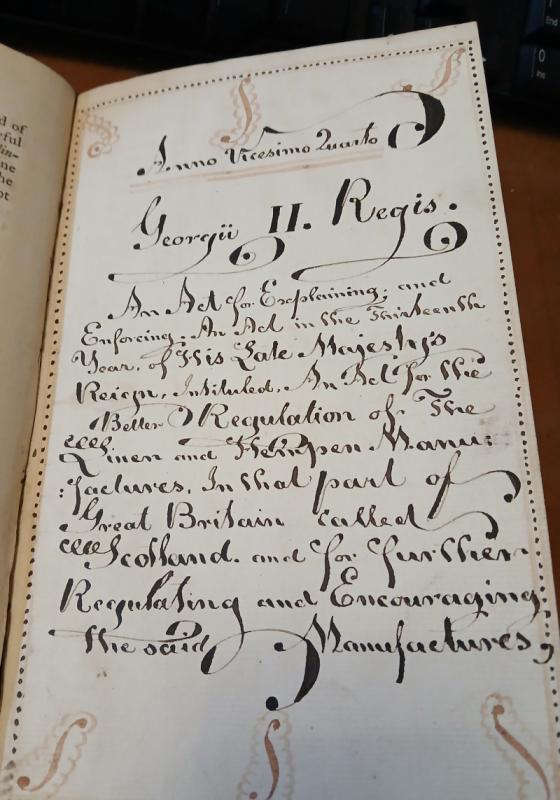 Anno Vicesimo Quarto
Georgii II. Regis.
An Act for Explaining; and
Enforcing; An Act in the Thirteenth
Year, of His Late Majesty's
Reign, Intituled, An Act for the
Better Regulation of The
Linen and Hempen Manu:
:factures, In that part of
Great Britain called
Scotland. and for further
Regulating and Encouraging;
the said Manufactures,
d of
ful
ne
he
ot